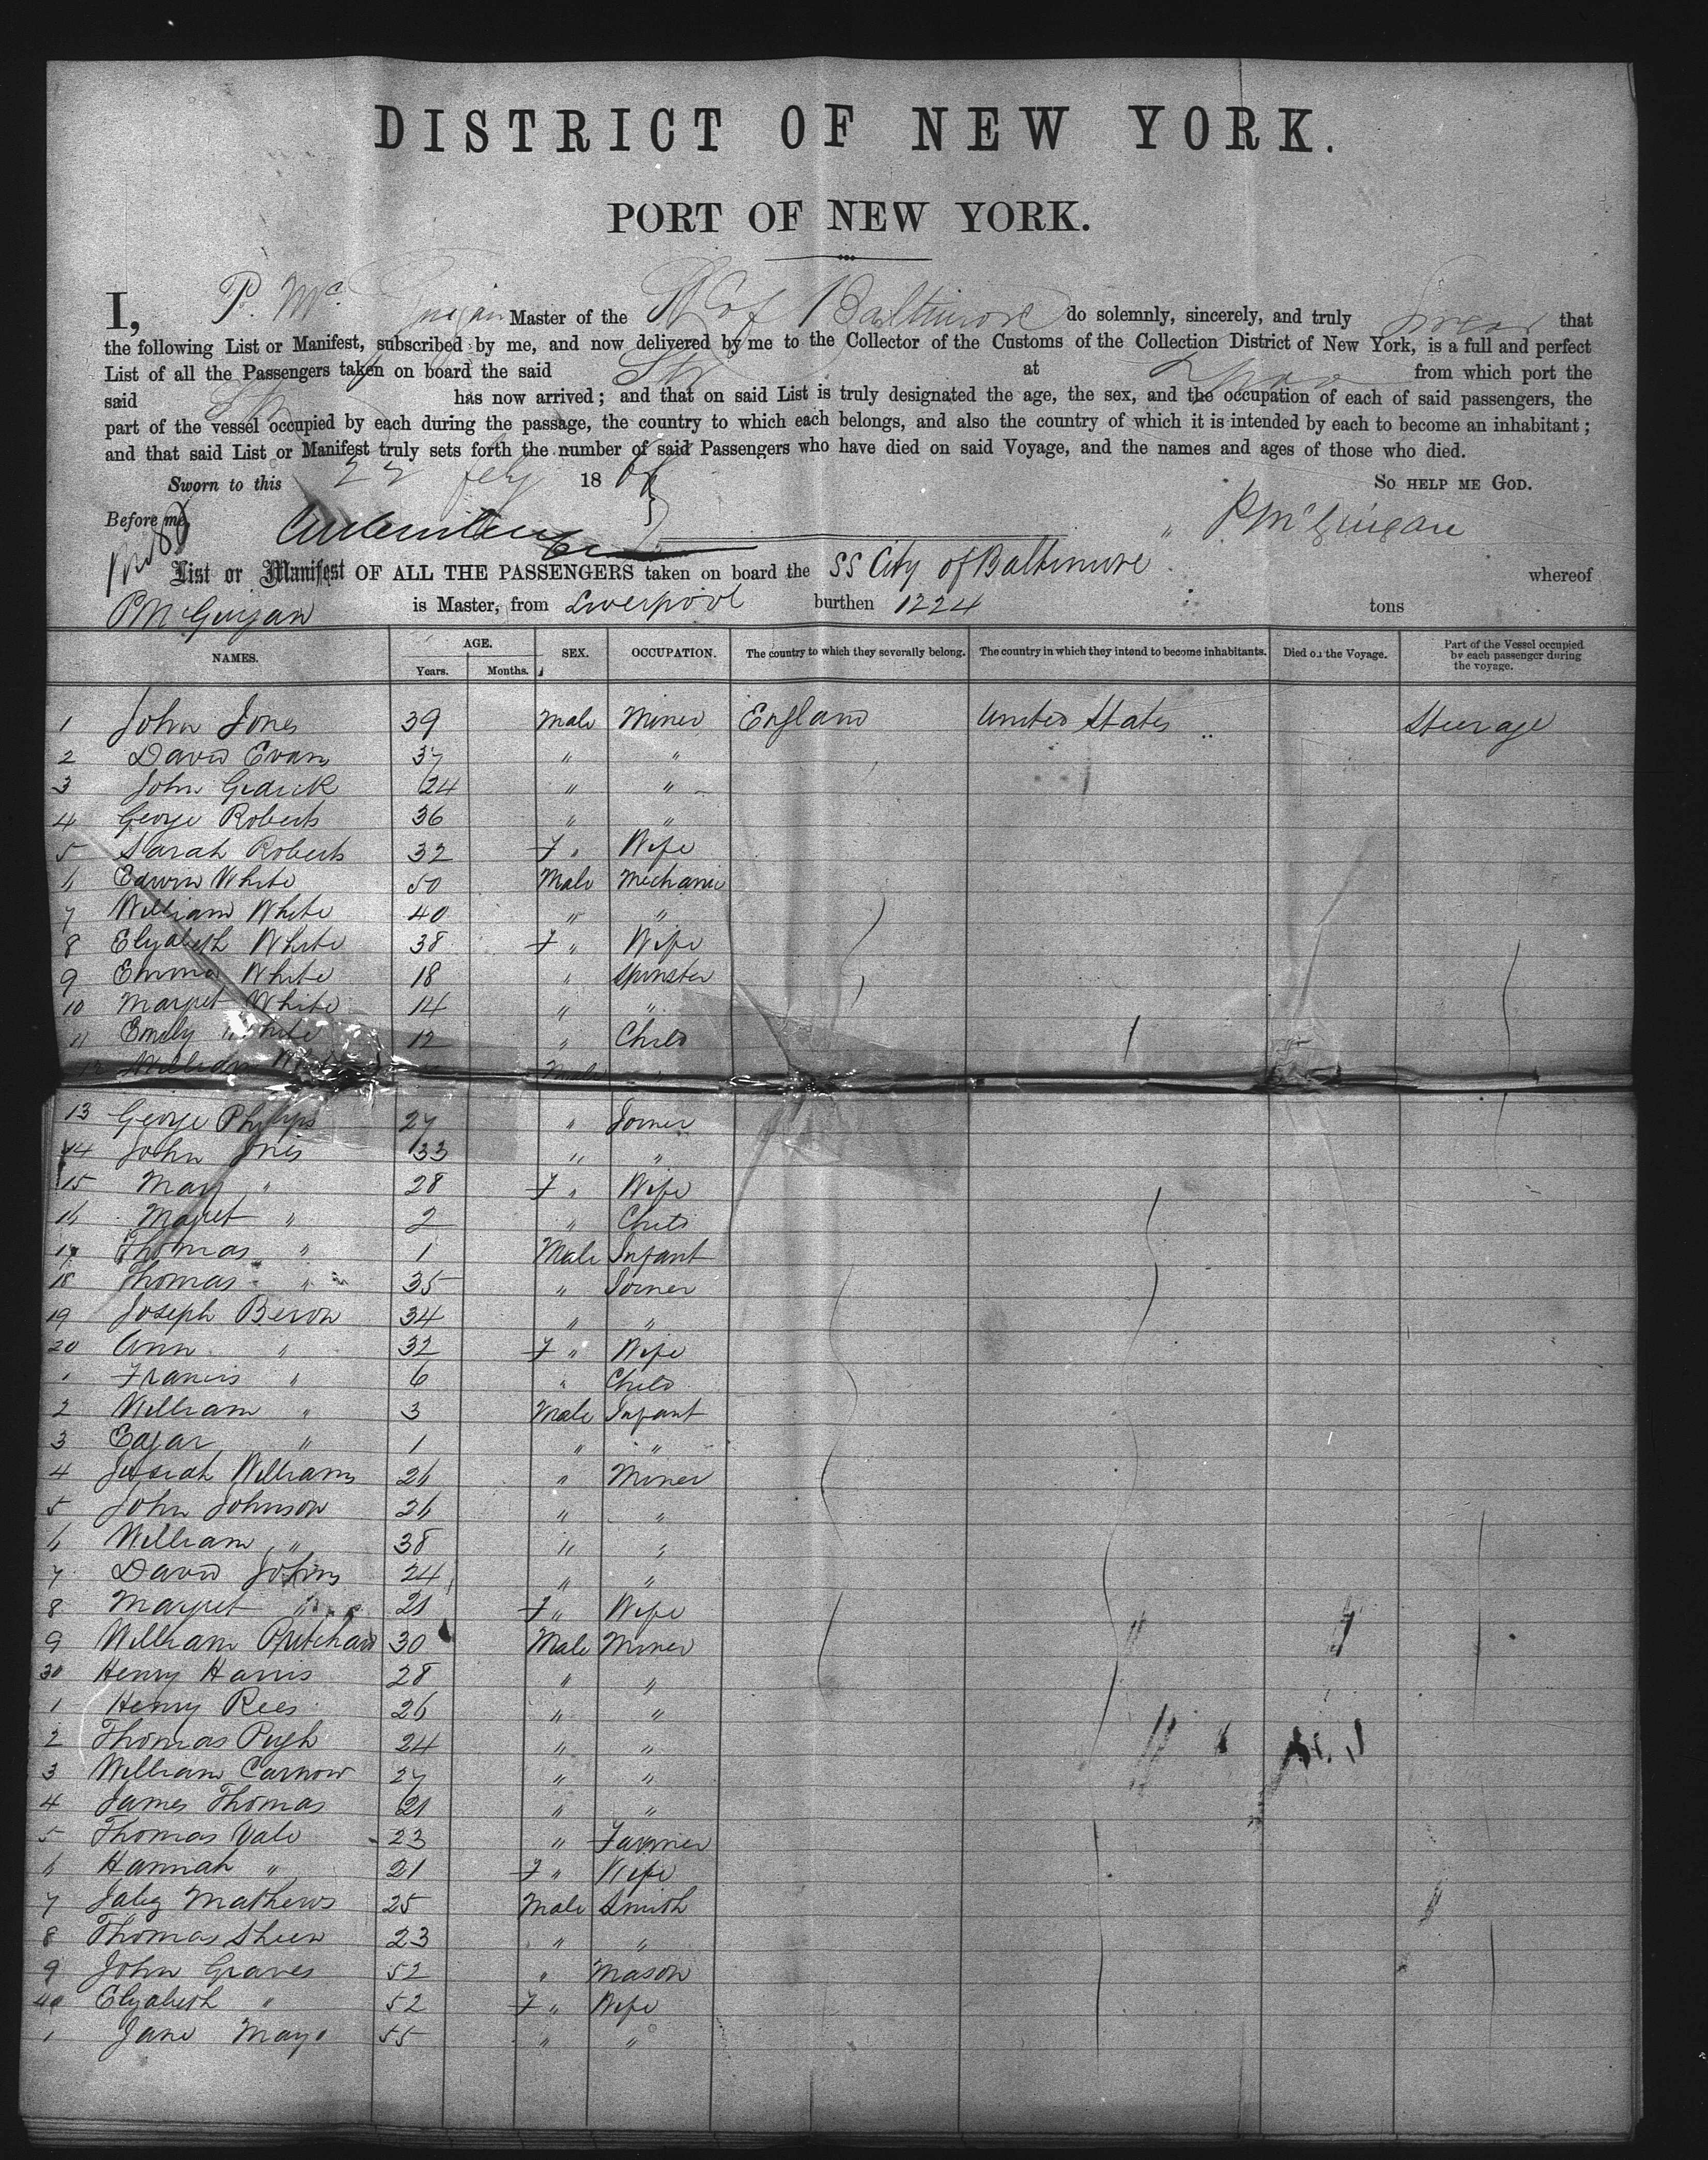 DISTRICT OF NEW YORK.
PORT OF NEW YORK.
I, P. Mc Guigan Master of the of Baltimore do solemnly, sincerely, and truly Swear that
the following List or Manifest, subscribed by me, and now delivered by me to the Collector of the Customs of the Collection District of New York, is a full and perfect
List of all the Passengers taken on board the said at from which port the
said has now arrived; and that on said List is truly designated the age, the sex, and the occupation of each of said passengers, the
part of the vessel occupied by each during the passage, the country to which each belongs, and also the country of which it is intended by each to become an inhabitant;
and that said List or Manifest truly sets forth the number of said Passengers who have died on said Voyage, and the names and ages of those who died.
Sworn to this 22 feby 18 SO HELP ME GOD.
Before me, P McGuigan
List or Manifest OF ALL THE PASSENGERS taken on board the SS City of Baltimore whereof
P McGuigan is Master, from Liverpool burthen 1224 tons
NAMES. AGE. Years. Months. SEX. OCCUPATION. The country to which they severally belong. The country in which they intend to become inhabitants. Died on the Voyage. Part of the Vessel occupied by each passenger during the voyage.
1 John Jones 39 Male Miner England United States Steerage
2 David Evans 37 " "
3 John Gedrick 24 " "
4 George Roberts 36 " "
5 Sarah Roberts 32 F " Wife
6 Edwin White 50 Male Mechanic
7 William White 40 " "
8 Elizabeth White 38 F " Wife
9 Emma White 18 " Spinster
10 Margret White 14 " "
11 Emily White 12 " Child
12 William Male "
13 George Philips 27 " Joiner
14 John Jones 33 " "
15 Mary " 28 F " Wife
16 Margret " 2 " Child
17 Thomas " 1 Male Infant
18 Thomas " 35 " Joiner
19 Joseph Beron 34 " "
20 Ann " 32 F " Wife
1 Francis " 6 " Child
2 William " 3 Male Infant
3 Edgar " 1 " "
4 Josiah Williams 26 " Miner
5 John Johnson 26 " "
6 William " 38 " "
7 David Johns 24 " "
8 Margret " 21 F " Wife
9 William Pritchard 30 Male Miner
30 Henry Harris 28 " "
1 Henry Rees 26 " "
2 Thomas Pugh 24 " "
3 William Carnow 27 " "
4 James Thomas 21 " "
5 Thomas Vale 23 " Farmer
6 Hannah " 21 F " Wife
7 Jabez Mathews 25 Male Smith
8 Thomas Sheen 23 " "
9 John Graves 52 " Mason
40 Elizabeth " 52 F " Wife
1 Jane Mayo 55 " "